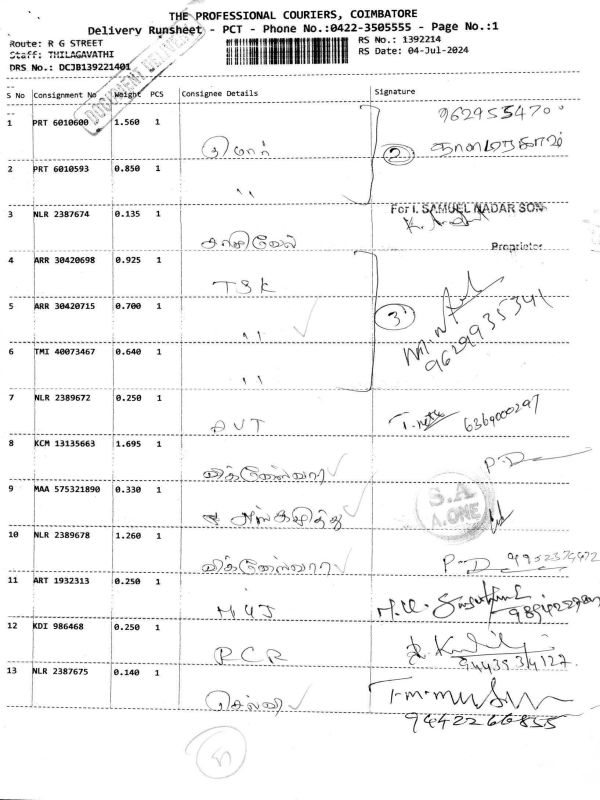 THE PROFESSIONAL COURIERS, COIMBATORE
Delivery Runsheet - PCT - Phone No.:0422-3505555 - Page No.:1
Route: R G STREET
RS No.: 1392214
Staff: THILAGAVATHI
RS Date: 04-Jul-2024
DRS No.: DCJB139221401
DOCUMENT DELIVERY
S No Consignment No Weight PCS Consignee Details Signature
1 PRT 6010600 1.560 1 குமார் 9629554700
2 PRT 6010593 0.850 1 " 2
3 NLR 2387674 0.135 1 காசிவேல் For I. SAMUEL NADAR SON
Proprietor
4 ARR 30420698 0.925 1 TSK
5 ARR 30420715 0.700 1 " 3 9629935341
6 TMI 40073467 0.640 1 "
7 NLR 2389672 0.250 1 AVT 6369000297
8 KCM 13135663 1.695 1 விக்னேஸ்வரா P-D
9 MAA 575321890 0.330 1 S.A A.ONE
10 NLR 2389678 1.260 1 விக்னேஸ்வரா P-D
11 ART 1932313 0.250 1
12 KDI 986468 0.250 1 RCR
13 NLR 2387675 0.140 1 செல்வி
9442266855